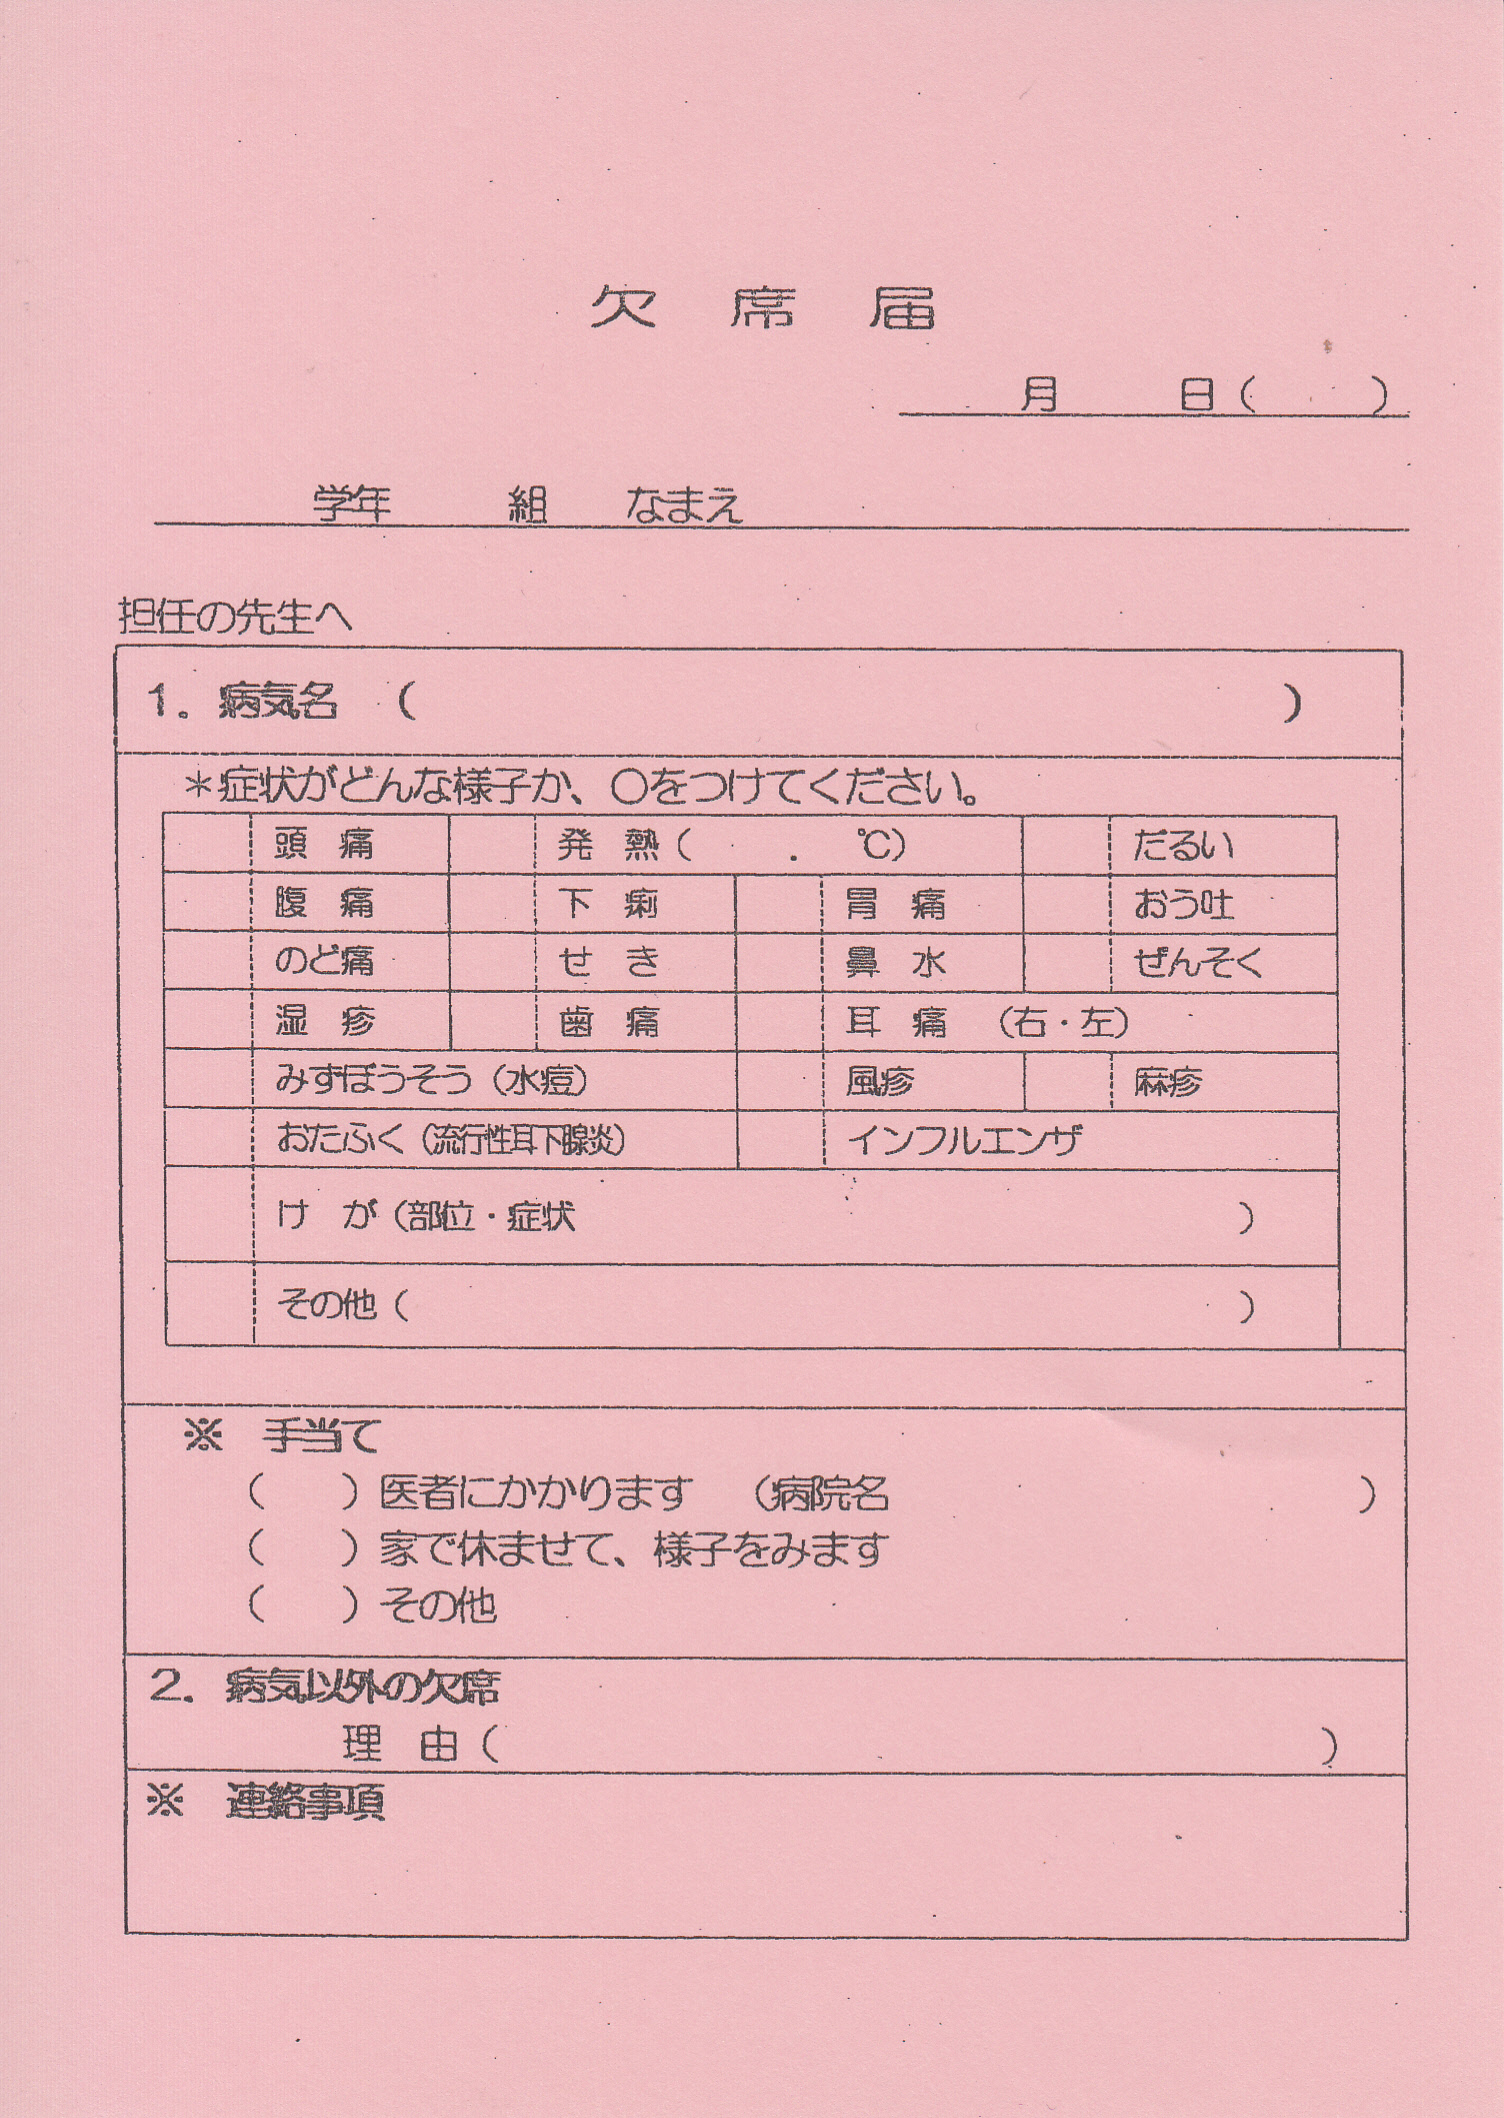 欠 席 届
月 日( )
学年 組 なまえ
担任の先生へ
1. 病気名 ( )
＊症状がどんな様子か、○をつけてください。
頭 痛 発 熱( . ℃) だるい
腹 痛 下 痢 胃 痛 おう吐
のど痛 せ き 鼻 水 ぜんそく
湿 疹 歯 痛 耳 痛 (右・左)
みずぼうそう(水痘) 風疹 麻疹
おたふく(流行性耳下腺炎) インフルエンザ
け が(部位・症状 )
その他( )
※ 手当て
( )医者にかかります (病院名 )
( )家で休ませて、様子をみます
( )その他
2. 病気以外の欠席
理 由( )
※ 連絡事項